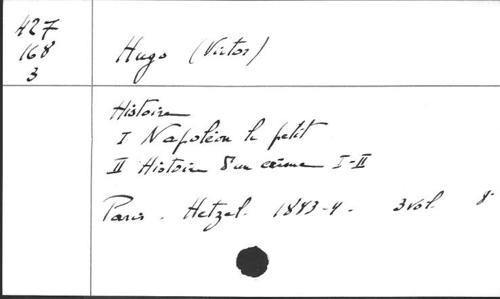 427
168
3
Hugo (Victor)
Histoire
I Napoléon le petit
II Histoire d'un crime I-II
Paris. Hetzel. 1883-4. 3 vol. 8°